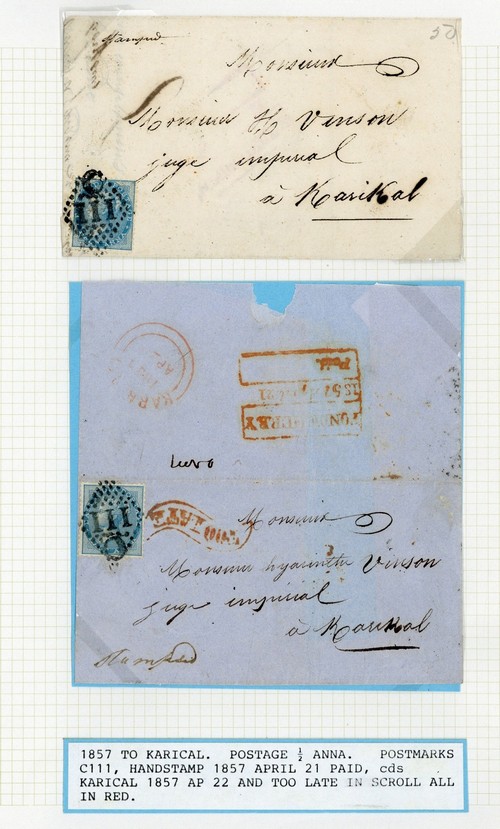 Stamped
50
Monsieur
Monsieur H Vinson
juge impérial
à Karikal
C
III
KARI
AP
Paid.
1857 April 21
PONDICHERRY
III
C
TOO LATE
Monsieur
Monsieur hyacinthe Vinson
juge impérial
à Karikal
Stamped
1857 TO KARICAL. POSTAGE ½ ANNA. POSTMARKS
C111, HANDSTAMP 1857 APRIL 21 PAID, cds
KARICAL 1857 AP 22 AND TOO LATE IN SCROLL ALL
IN RED.